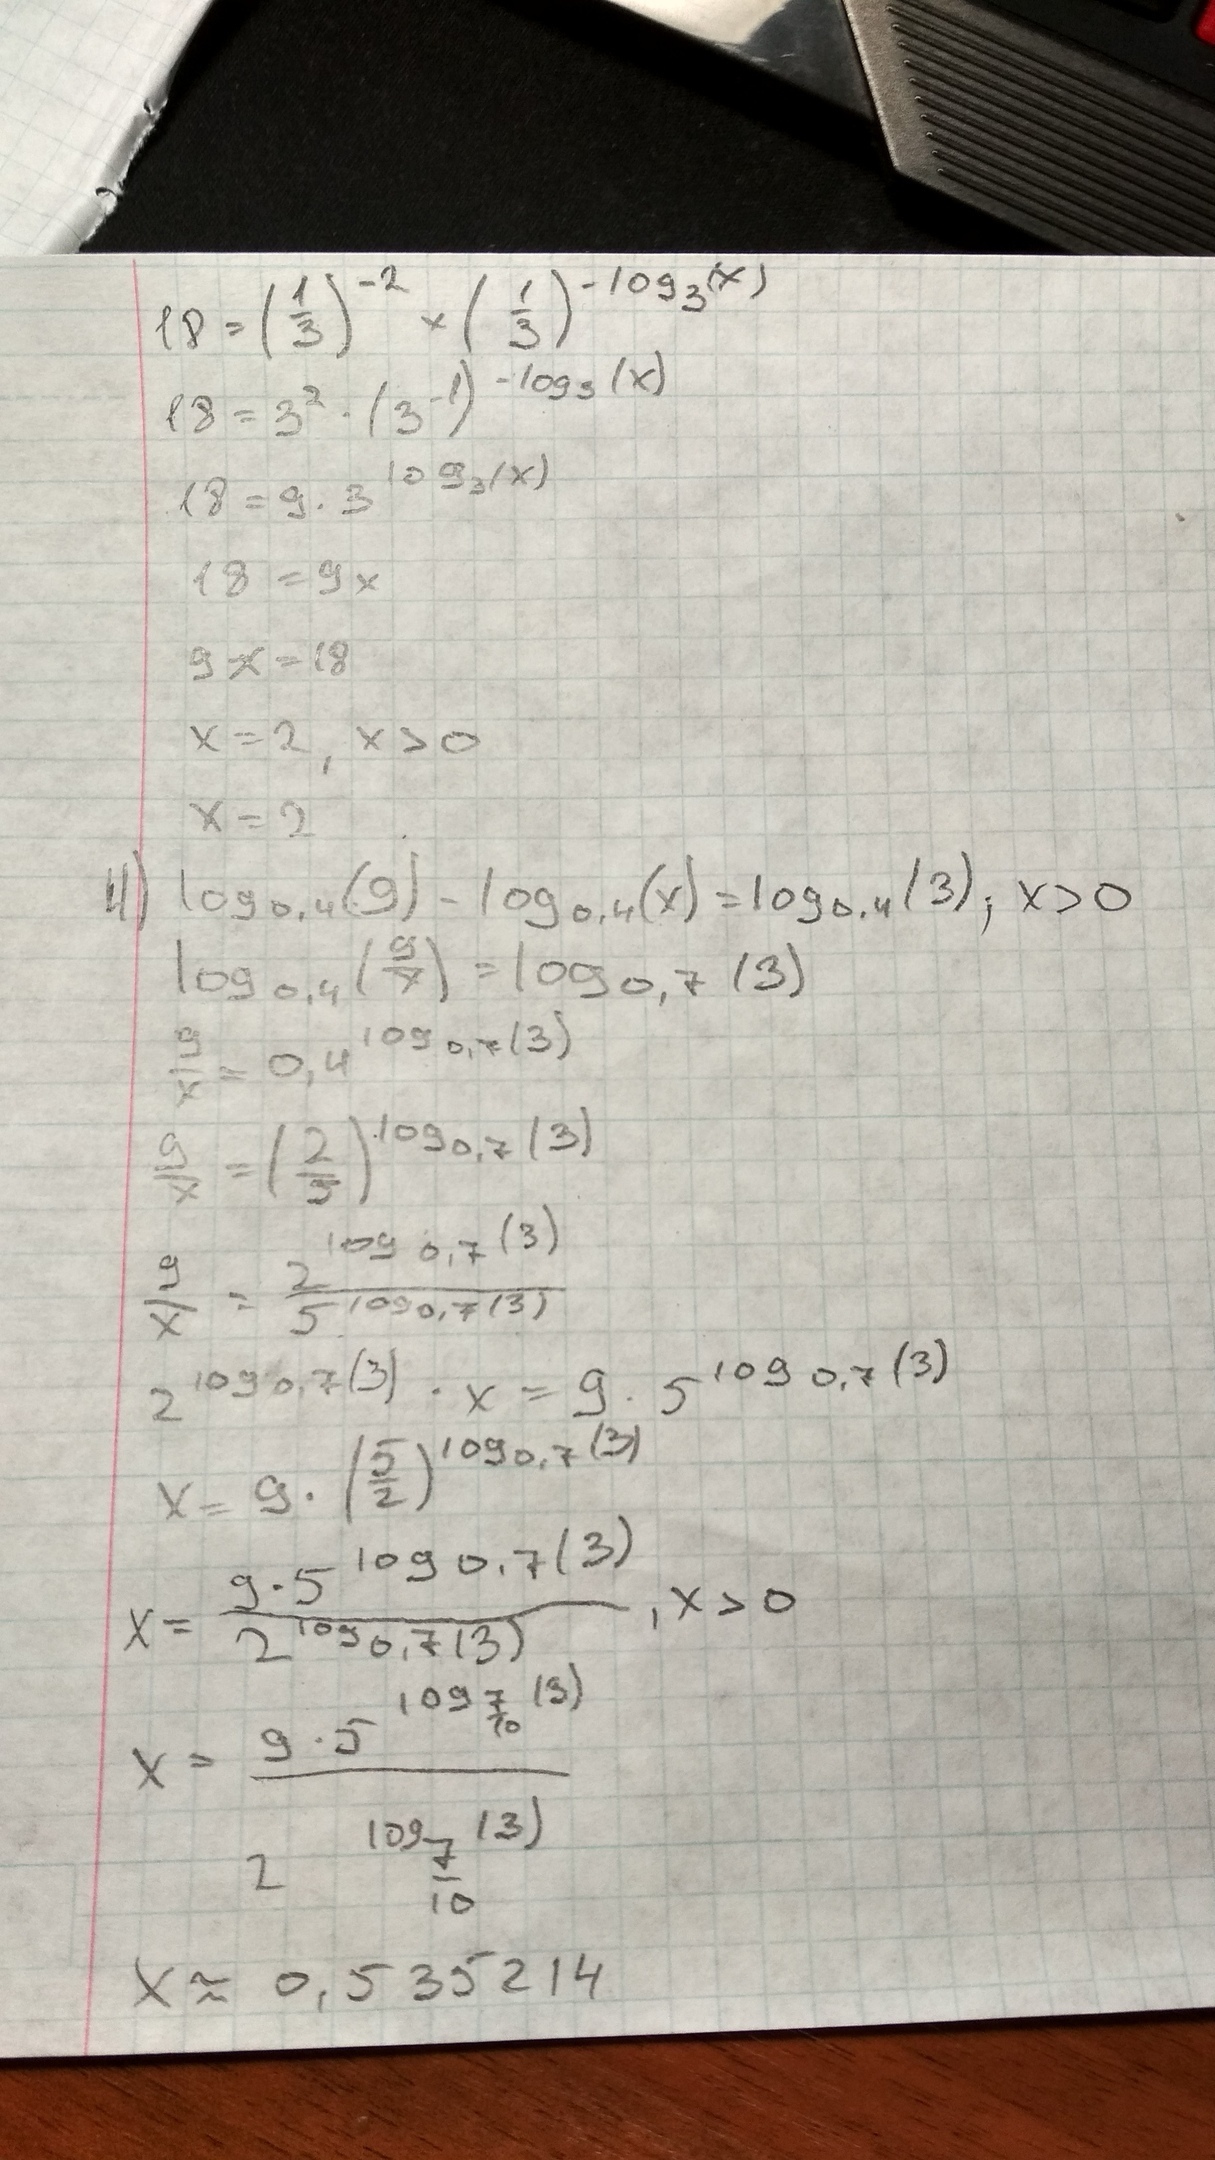 18 = (1/3)^-2 × (1/3)^-log₃(x)
18 = 3² · (3^-1)^-log₃(x)
18 = 9 · 3^log₃(x)
18 = 9x
9x = 18
x = 2, x > 0
x = 2
4) log₀,₄(9) - log₀,₄(x) = log₀,₄(3); x > 0
log₀,₄(9/x) = log₀,₇(3)
9/x = 0,4^log₀,₇(3)
9/x = (2/5)^log₀,₇(3)
9/x = 2^log₀,₇(3) / 5^log₀,₇(3)
2^log₀,₇(3) · x = 9 · 5^log₀,₇(3)
x = 9 · (5/2)^log₀,₇(3)
x = 9 · 5^log₀,₇(3) / 2^log₀,₇(3), x > 0
x = 9 · 5^log_7/10(3) / 2^log_7/10(3)
x ≈ 0,535214